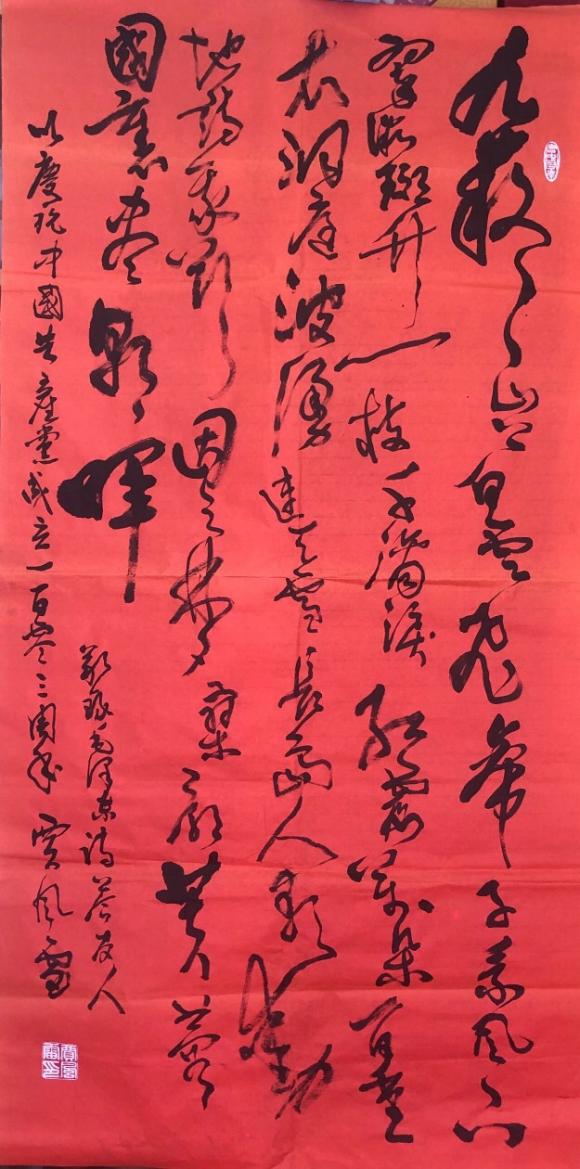 九嶷山上白雲飛帝子乘風下
翠微斑竹一枝千滴淚紅霞萬朵百重
衣洞庭波湧連天雪長島人歌動
地詩我欲因之夢寥廓芙蓉
國裏盡朝暉
敬錄毛澤東詩答友人
以慶祝中國共產黨成立一百零三周年 賈風雷